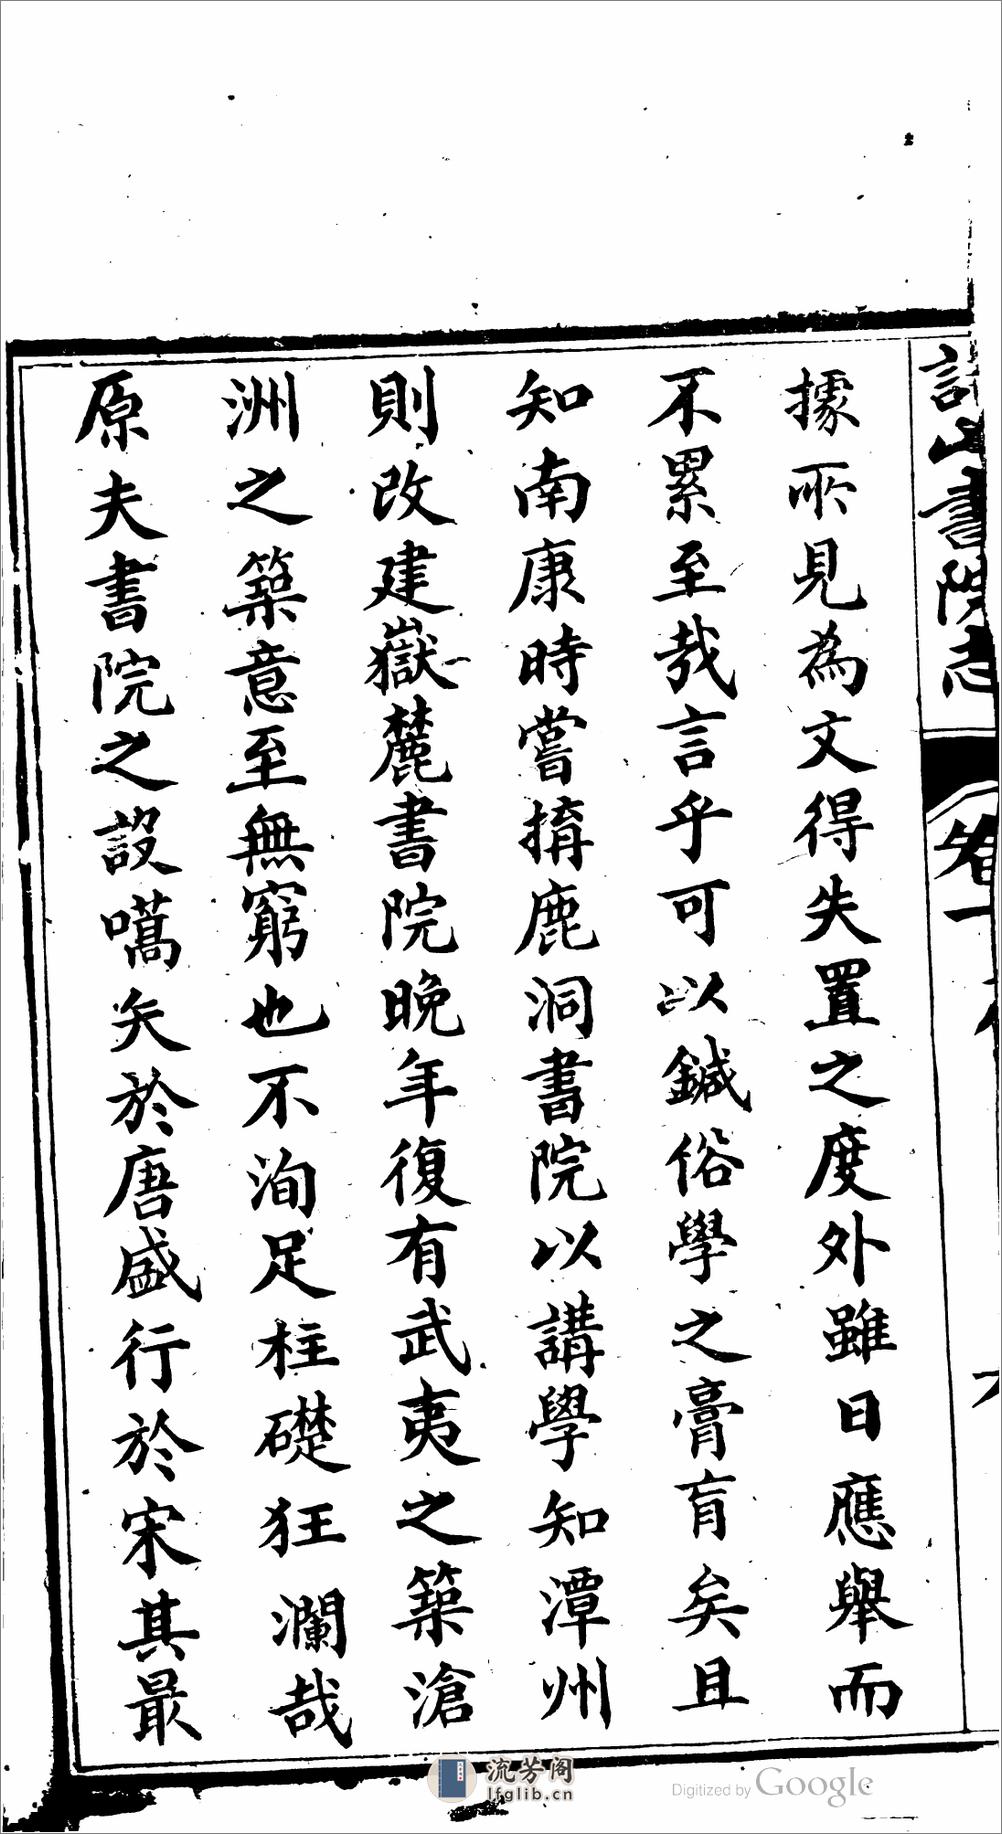 詩山書院志 卷一
據所見為文得失置之度外雖日應舉而
不累至哉言乎可以鍼俗學之膏肓矣且
知南康時嘗搆鹿洞書院以講學知潭州
則改建嶽麓書院晚年復有武夷之築滄
洲之築意至無窮也不洵足柱礎狂瀾哉
原夫書院之設嚆矢於唐盛行於宋其最
流芳阁
lfglib.cn
Digitized by Google